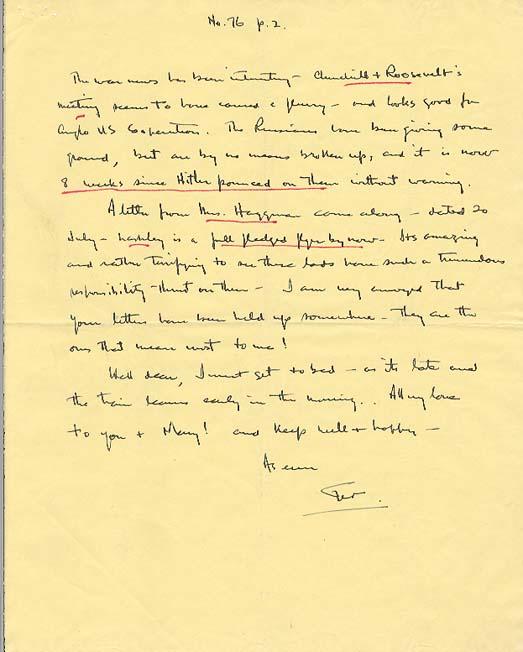 No. 76 p. 2.
The war news has been interesting - Churchill + Roosevelt's
meeting seems to have caused a flurry - and looks good for
Anglo US Cooperation. The Russians have been giving some
ground, but are by no means broken up, and it is now
8 weeks since Hitler pounced on them without warning.
A letter from Mrs. Hayman came along - dated 20
July - is a full fledged flyer by now - Its amazing
and rather terrifying to see these lads have such a tremendous
responsibility thrust on them - I am very annoyed that
your letters have been held up somewhere - they are the
ones that mean most to me!
Well dear, I must get to bed - as its late and
the train leaves early in the morning.. All my love
to you + Mary! and keep well + happy -
As ever